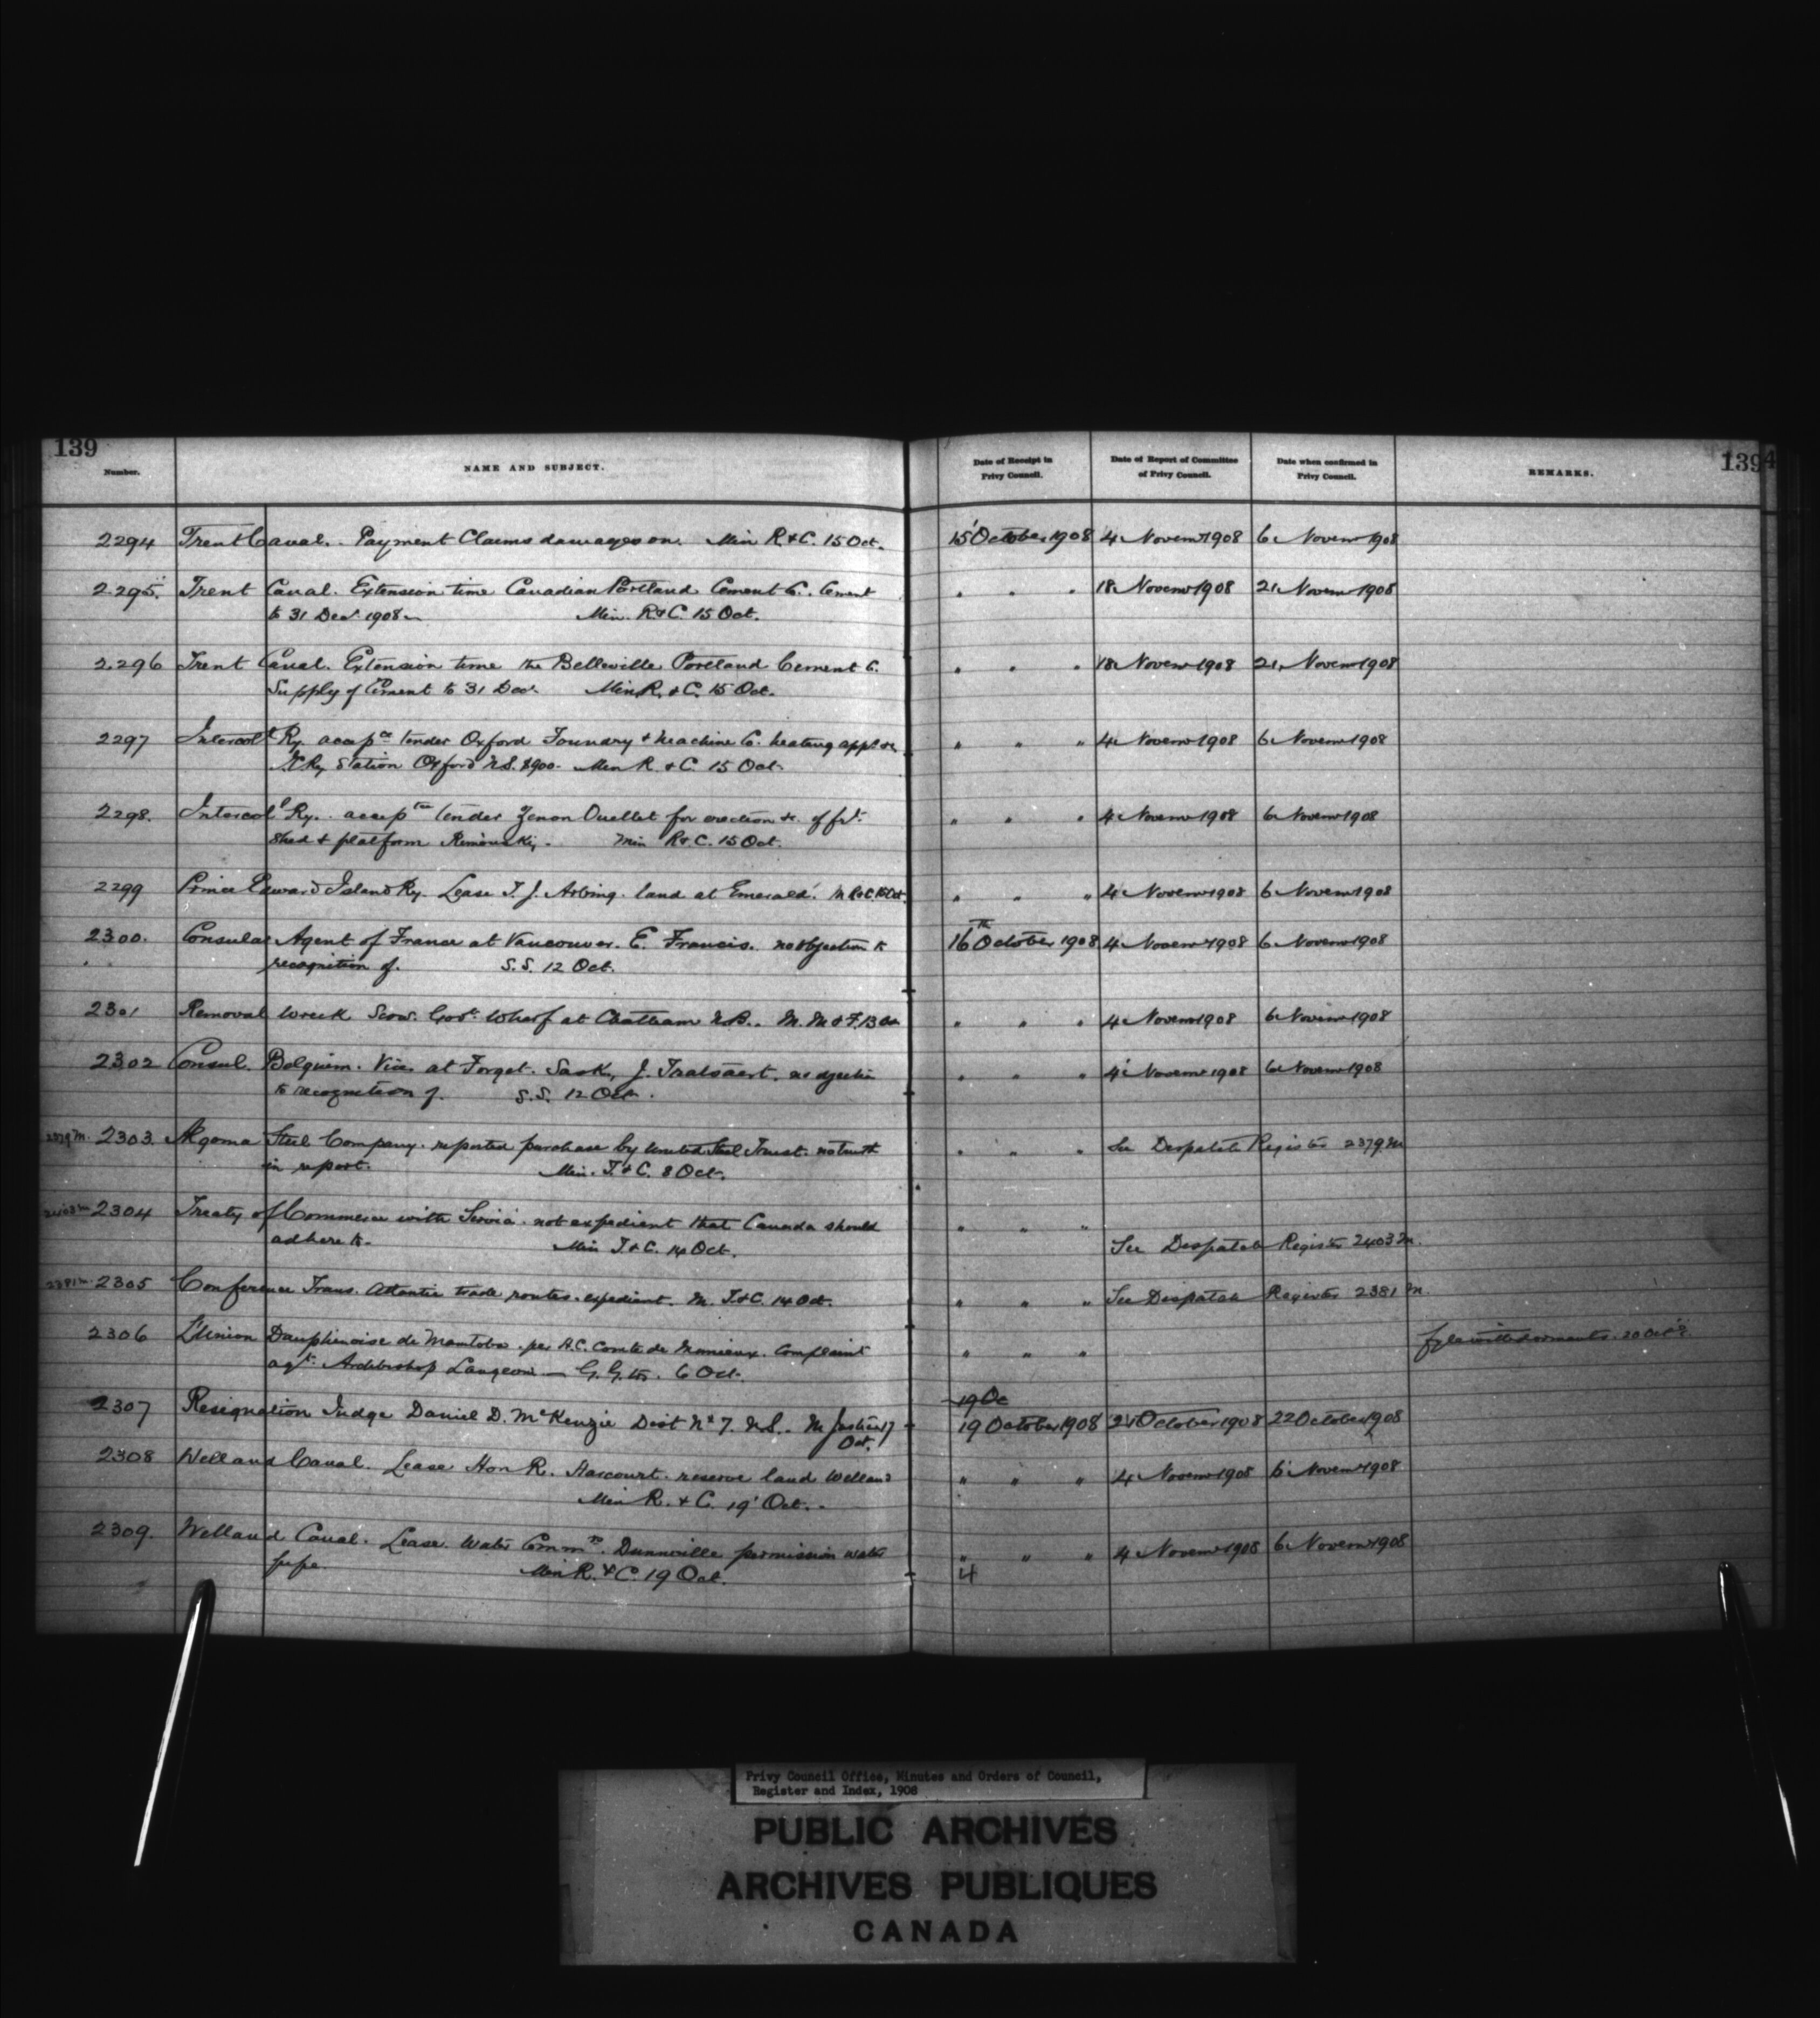 139
1394
Number.
NAME AND SUBJECT.
Date of Receipt in Privy Council.
Date of Report of Committee of Privy Council.
Date when confirmed in Privy Council.
REMARKS.
2294 Trent Canal. Payment Claims damages on. Min R. & C. 15 Oct. 15 October 1908 4 Novemr 1908 6 Novemr 1908
2295. Trent Canal. Extension time Canadian Portland Cement Co. Cement " " " 18 Novemr 1908 21 Novemr 1908
to 31 Decr 1908 Min. R & C. 15 Oct.
2296 Trent Canal. Extension time the Belleville Portland Cement Co. " " " 18 Novemr 1908 21 Novemr 1908
Supply of Cement to 31 Decr. Min R. & C. 15 Oct.
2297 Intercoll Ry accepce tender Oxford Foundry & Machine Co. heating appts &c " " " 4 Novemr 1908 6 Novemr 1908
Ry Station Oxford N.S. $900. Min R. & C. 15 Oct.
2298. Intercoll Ry. accepce tender Zenon Ouellet for erection &c. of frt. " " " 4 Novemr 1908 6 Novemr 1908
Shed & platform Rimouski. Min R & C. 15 Oct.
2299 Prince Edward Island Ry. Lease T. J. Arbing. land at Emerald. M R & C 15 Oct " " " 4 Novemr 1908 6 Novemr 1908
2300. Consular Agent of France at Vancouver. E. Francis. no objection to 16th October 1908 4 Novemr 1908 6 Novemr 1908
recognition of. S.S. 12 Oct.
2301 Removal wreck Scow. Govt. Wharf at Chatham N.B. M. M & F. 13 Oct " " " 4 Novemr 1908 6 Novemr 1908
2302 Consul. Belgium. Vice at Forget. Sask, J. Tratsaert. no objection " " " 4 Novemr 1908 6 Novemr 1908
to recognition of. S.S. 12 Oct.
2379 M. 2303. Algoma Steel Company. reported purchase by United Steel Trust. no truth " " " See Despatch Register 2379 M
in report. Min. T. & C. 8 Oct.
2403 M 2304 Treaty of Commerce with Servia. not expedient that Canada should " " "
adhere to. Min T & C. 14 Oct. See Despatch Register 2403 M.
2381 M. 2305 Conference Trans. Atlantic trade routes. expedient. M. T & C. 14 Oct. " " " See Despatch Register 2381 M
2306 L'Union Dauphinoise de Manitoba. per A.C. Comte de Complaint " " " 20 Oct
agt. Archbishop Langevin — G. G. 6 Oct.
19 Oc
2307 Resignation Judge Daniel D. McKenzie Dist No 7. N.S. M Justice 17 Oct. 19 October 1908 21 October 1908 22 October 1908
2308 Welland Canal. Lease Hon R. Harcourt. reserve land Welland " " " 4 Novemr 1908 6 Novemr 1908
Min R. & C. 19 Oct.
2309. Welland Canal. Lease. Water Commrs. Dunnville permission water " " " 4 Novemr 1908 6 Novemr 1908
pipe. Min R. & C. 19 Oct. 4
Privy Council Office, Minutes and Orders of Council,
Register and Index, 1908
PUBLIC ARCHIVES
ARCHIVES PUBLIQUES
CANADA